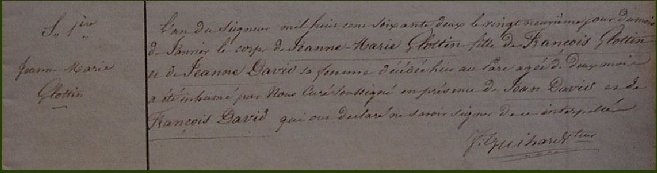 S. fère
Jeanne Marie
Glottin
L'an du Seigneur mil huit cent soixante deux le vingt neuvième jour du mois
de Janvier le corps de Jeanne Marie Glottin fille de François Glottin
et de Jeanne David sa femme décédée hier au agée de deux mois
a été inhumé par Nous Curé soussigné en présence de Jean David et de
François David qui ont déclaré ne savoir signer de ce interpellé
Guihard